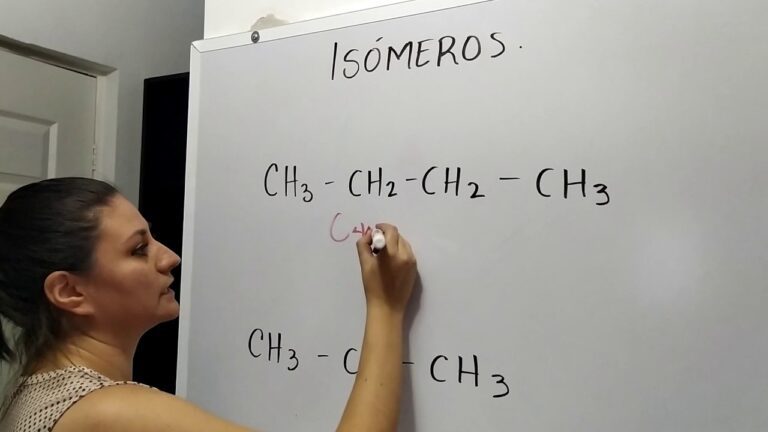 ISÓMEROS.
CH3 - CH2 - CH2 - CH3
C
CH3 - C - CH3